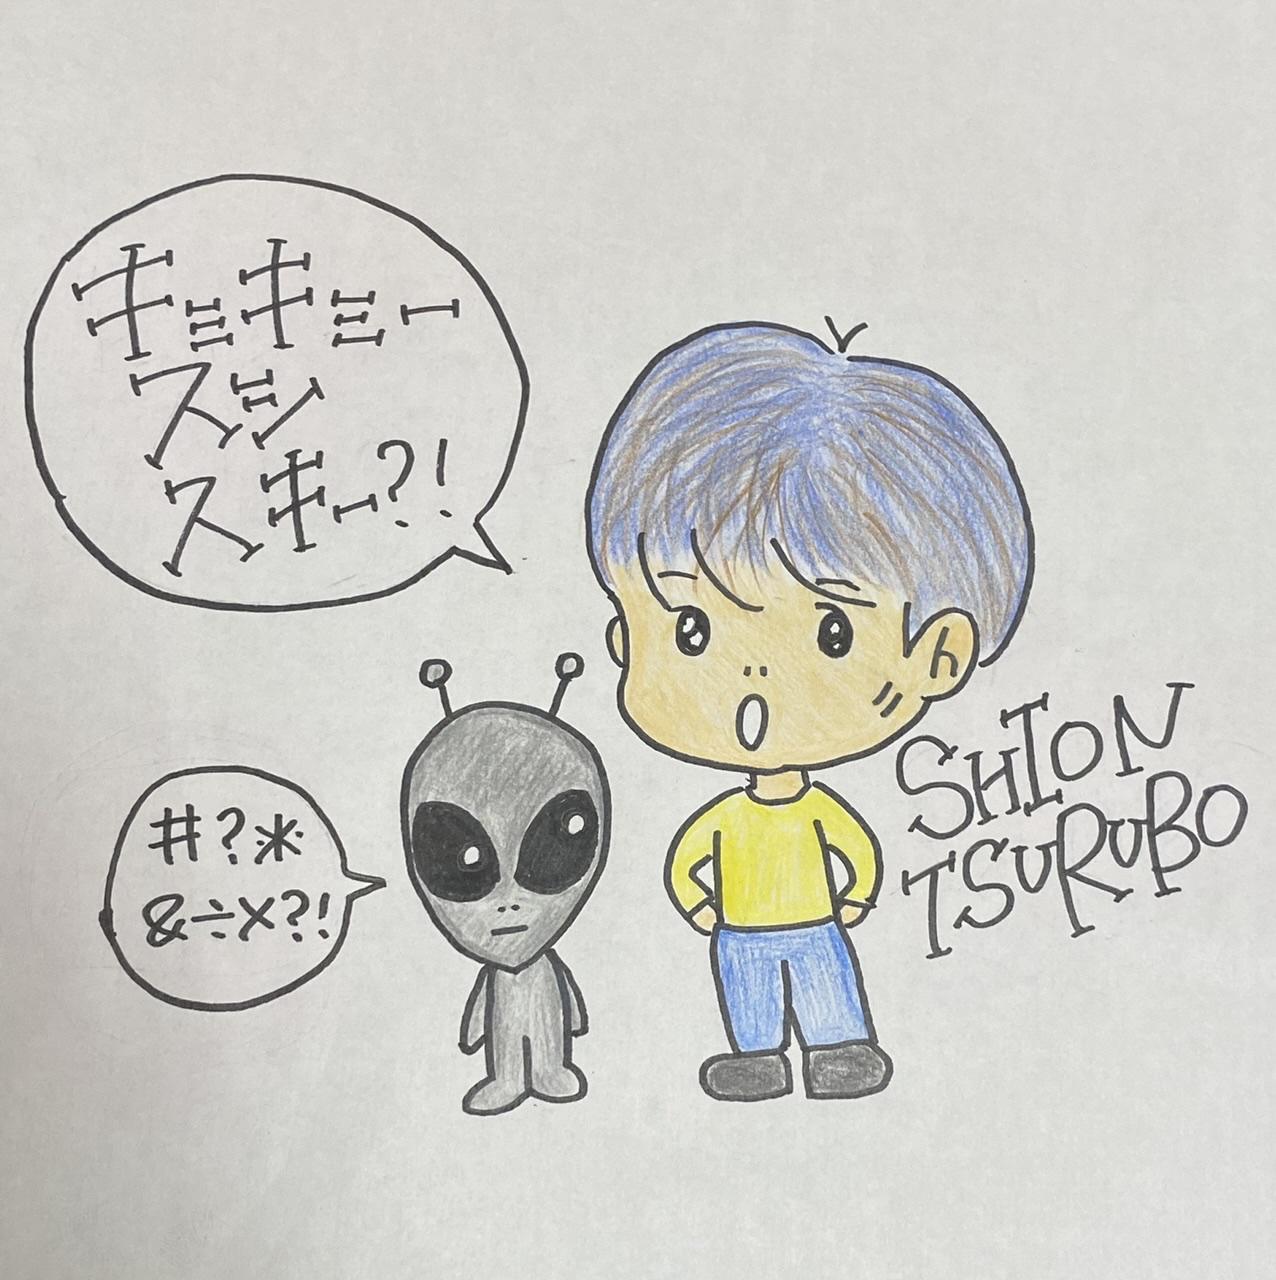 キミキミー
スシ
スキー?!
#?*
&÷×?!
SHION
TSURUBO